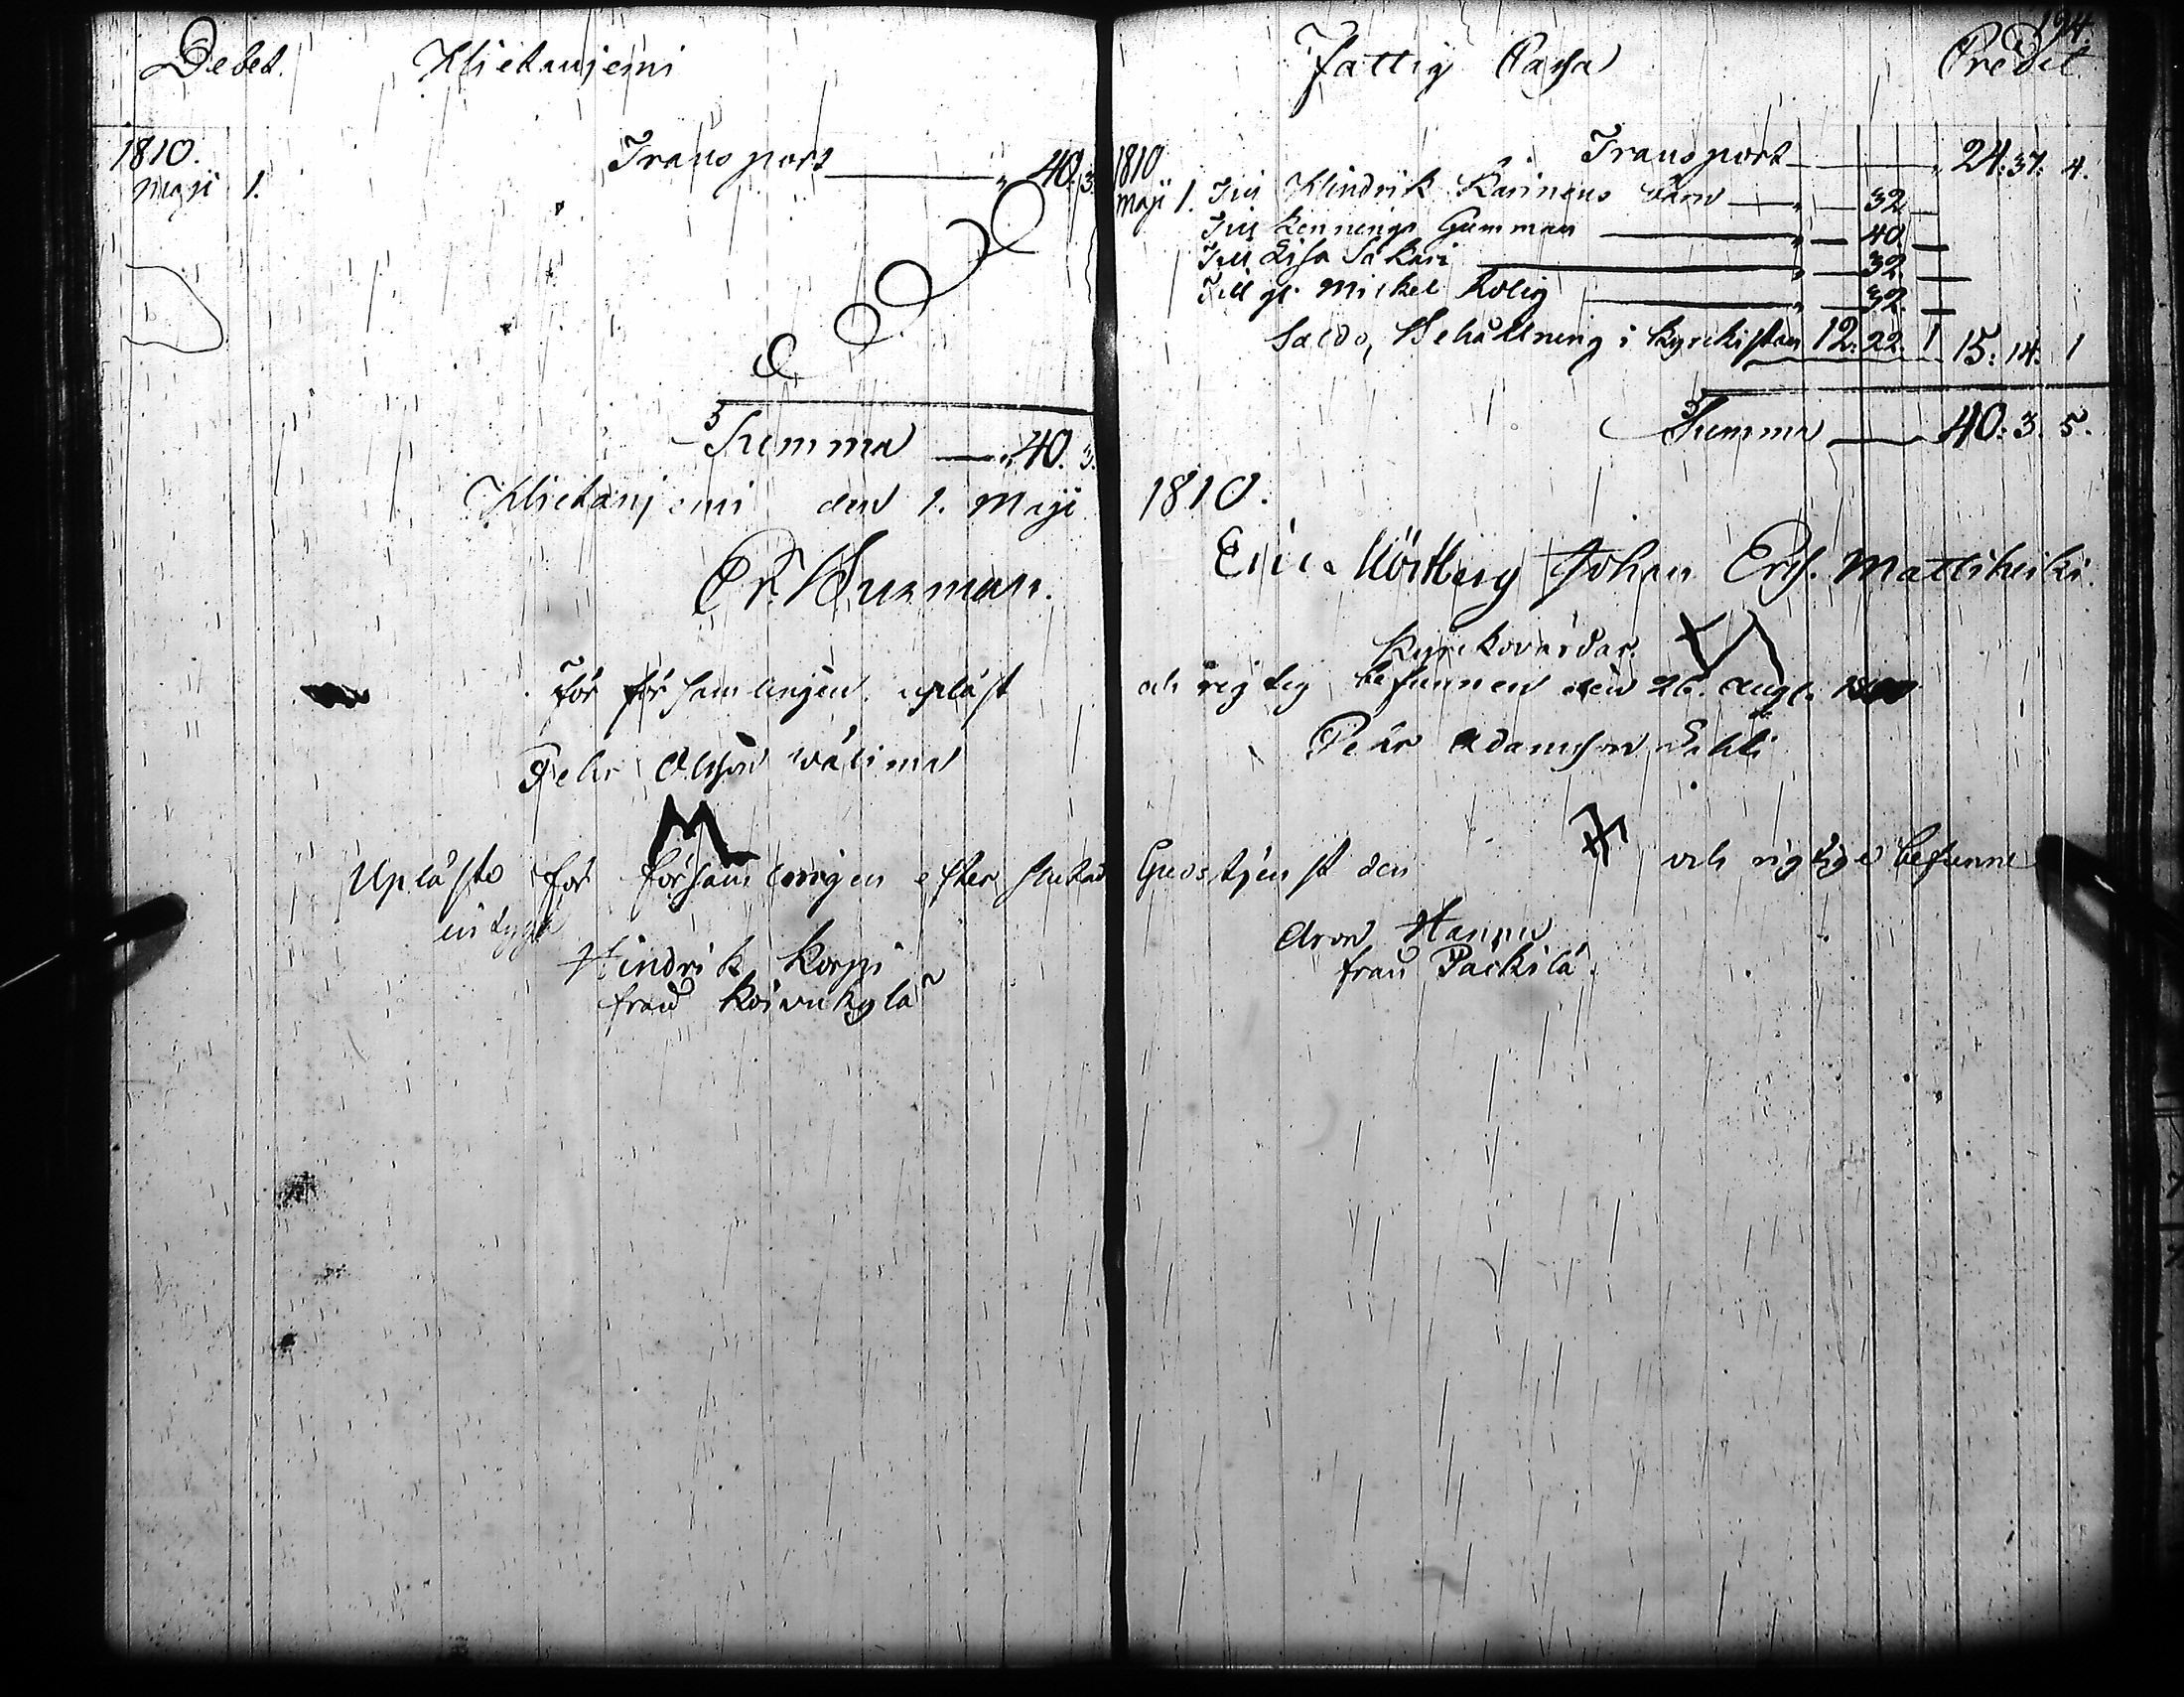 Debet. Hietaniemi
1810.
Maji 1. Transport 40. 3
Summa 40. 3.
Hietaniemi den 1. Maji
Er. Burman.
För församlingen upläst
Pehr Olsson Wälima
Upläste för församlingen efter slutad
intyga
Hindrik Korpi
från Koivukylä
194.
Fattig Cassa Credit
1810 Transport 24: 37. 4.
Maji 1. Till Hindrik Karinens barn 32
Till Kennings Gumman 40
Till Lisa Sakari 32
Till gl. Mickel Rolig 32
Saldo, Behållning i Kyrckistan 12: 22. 1 15: 14. 1
Summa 40: 3. 5.
1810.
Eric Johan Ers. Mattiheiki
Kyrckovärdar.
och rigtig befunnen den 26. Augt.
Pehr Adamsson
Gudstjenst den och rigtige befunne
Aron Hannu
från Packilä.